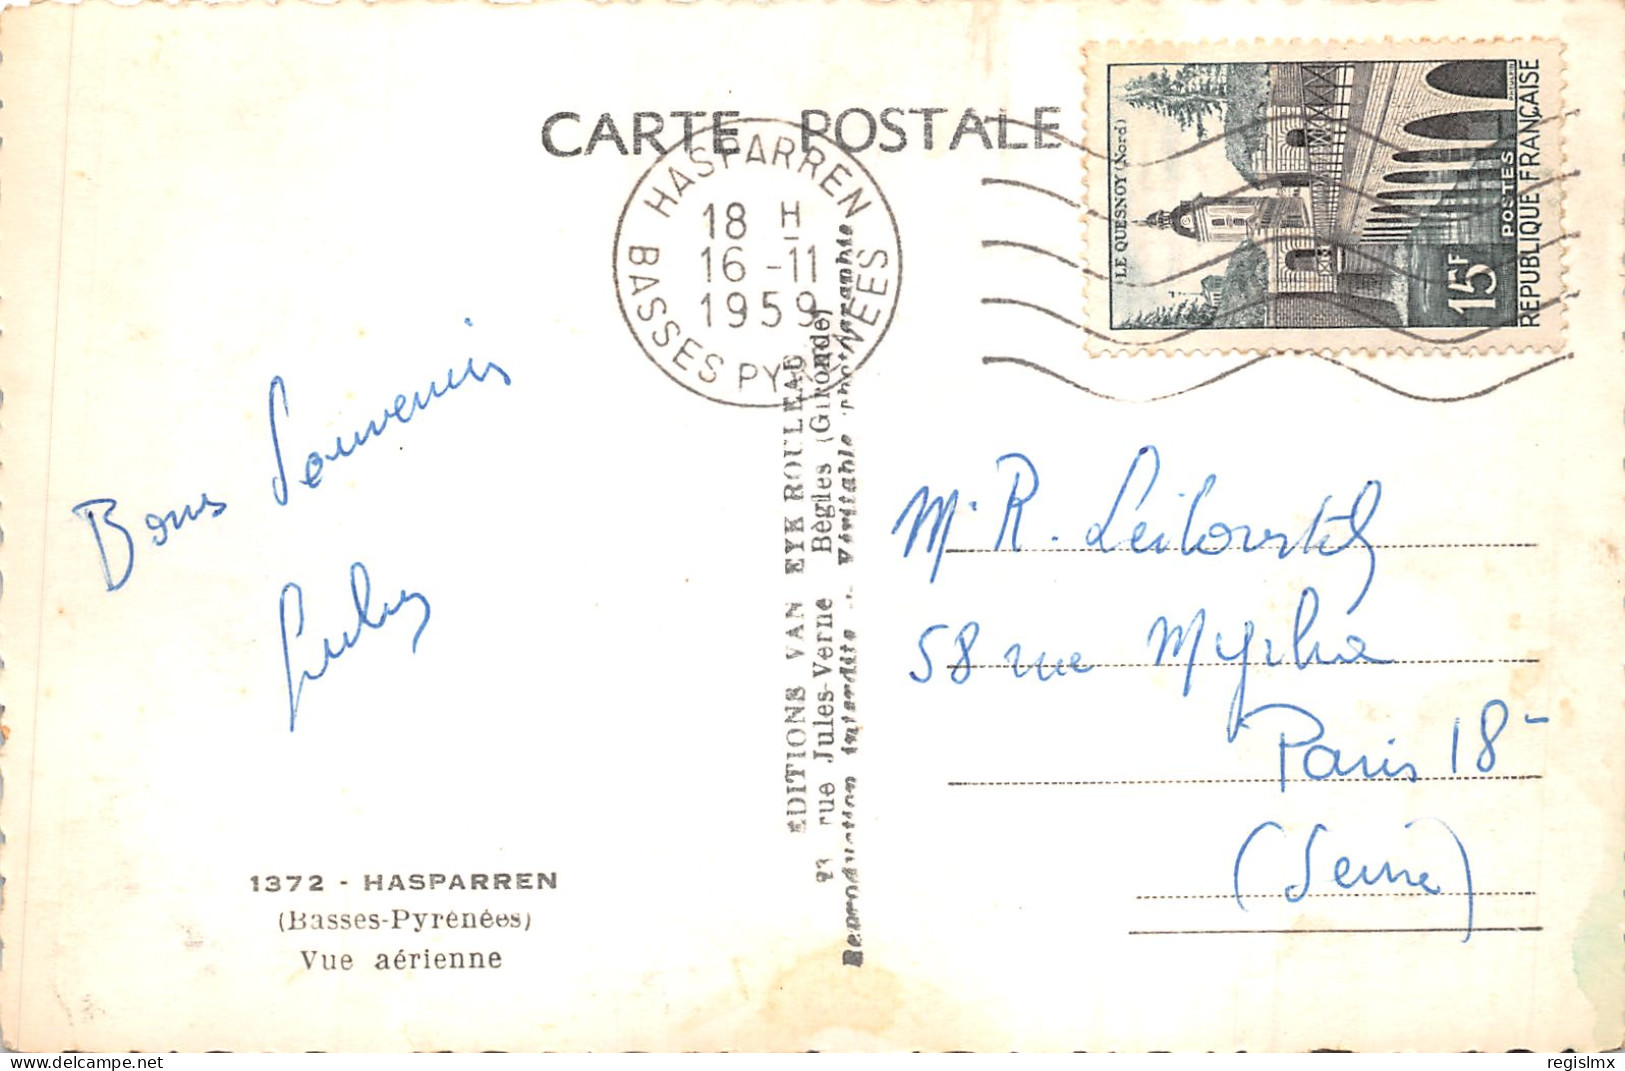 CARTE POSTALE
HASPARREN
18 H
16-11
1959
BASSES PYRENEES
LE QUESNOY (Nord)
15F
POSTES
REPUBLIQUE FRANÇAISE
Bons Souvenirs
EDITIONS VAN EYK ROULEAU
23 rue Jules-Verne Bègles (Gironde)
Reproduction interdite - Véritable photographie
M. R.
58 rue Myrha
Paris 18
(Seine)
1372 - HASPARREN
(Basses-Pyrénées)
Vue aérienne
delcampe.net
regislmx